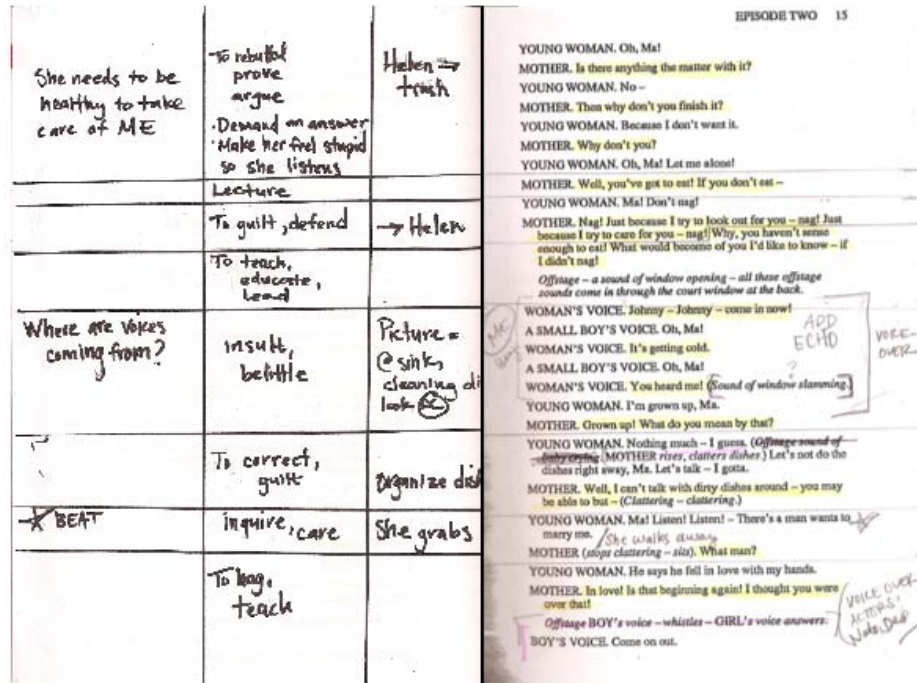 She needs to be
healthy to take
care of ME
To rebuttal
prove
argue
• Demand an answer
• Make her feel stupid
so she listens
Helen →
trash
Lecture
To guilt, defend
→ Helen
To teach,
educate,
Lead
Where are voices
coming from?
insult,
belittle
Picture =
@ sink,
cleaning di
look
To correct,
guilt
organize dish
BEAT
inquire, care
She grabs
To
teach
EPISODE TWO 15
YOUNG WOMAN. Oh, Ma!
MOTHER. Is there anything the matter with it?
YOUNG WOMAN. No –
MOTHER. Then why don't you finish it?
YOUNG WOMAN. Because I don't want it.
MOTHER. Why don't you?
YOUNG WOMAN. Oh, Ma! Let me alone!
MOTHER. Well, you've got to eat! If you don't eat –
YOUNG WOMAN. Ma! Don't nag!
MOTHER. Nag! Just because I try to look out for you – nag! Just
because I try to care for you – nag! Why, you haven't sense
enough to eat! What would become of you I'd like to know – if
I didn't nag!
Offstage – a sound of window opening – all these offstage
sounds come in through the court window at the back.
WOMAN'S VOICE. Johnny – Johnny – come in now!
A SMALL BOY'S VOICE. Oh, Ma!
WOMAN'S VOICE. It's getting cold.
A SMALL BOY'S VOICE. Oh, Ma!
WOMAN'S VOICE. You heard me! (Sound of window slamming.)
ME
ADD
ECHO
?
VOICE-
OVER
YOUNG WOMAN. I'm grown up, Ma.
MOTHER. Grown up! What do you mean by that?
YOUNG WOMAN. Nothing much – I guess. (Offstage sound of
baby crying. MOTHER rises, clatters dishes.) Let's not do the
dishes right away, Ma. Let's talk – I gotta.
MOTHER. Well, I can't talk with dirty dishes around – you may
be able to but – (Clattering – clattering.)
YOUNG WOMAN. Ma! Listen! Listen! – There's a man wants to
marry me.
She walks away
MOTHER (stops clattering – sits). What man?
YOUNG WOMAN. He says he fell in love with my hands.
MOTHER. In love! Is that beginning again! I thought you were
over that!
Offstage BOY'S voice – whistles – GIRL'S voice answers.
BOY'S VOICE. Come on out.
VOICE OVER
ACTORS:
Nate, Dad